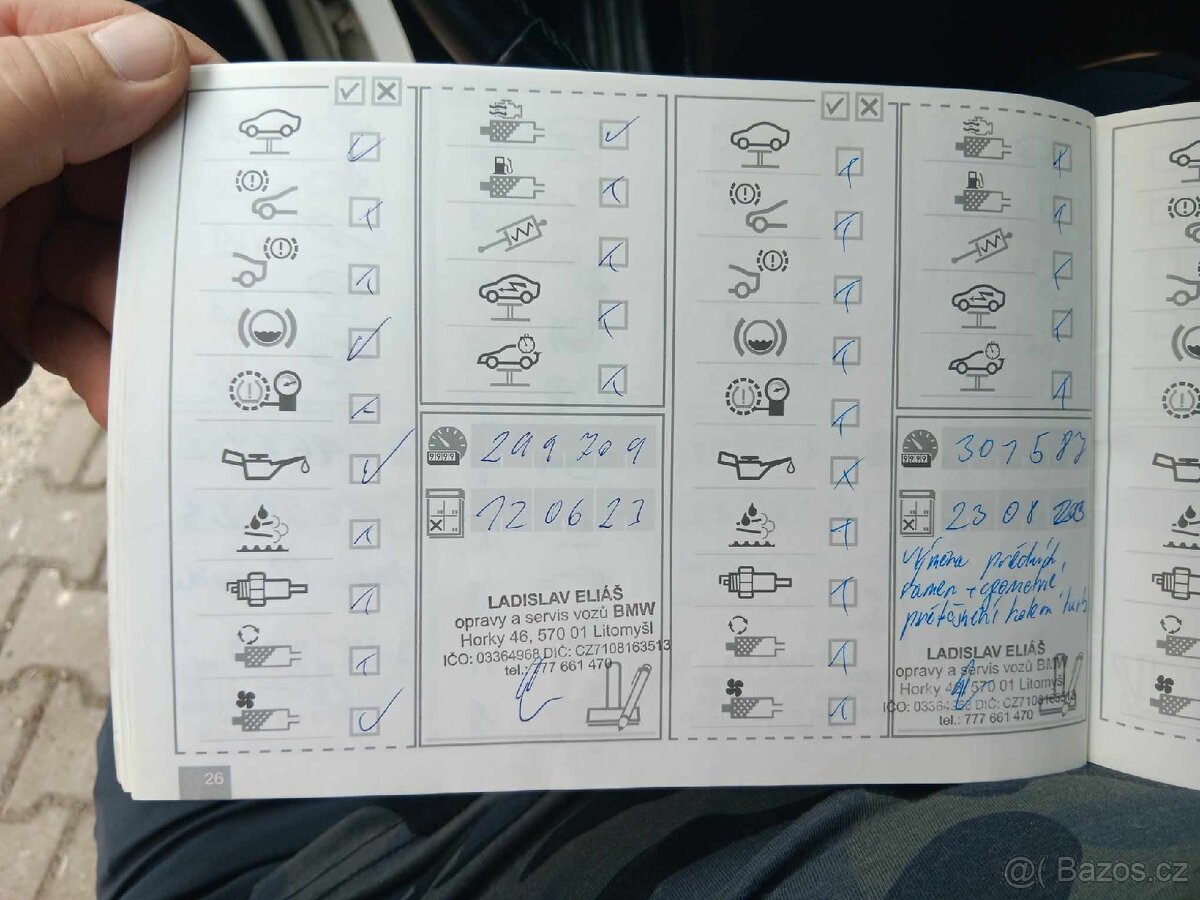 299 709
12 06 23
LADISLAV ELIÁŠ
opravy a servis vozů BMW
Horky 46, 570 01 Litomyšl
IČO: 03364968 DIČ: CZ7108163513
tel.: 777 661 470
26
301 587
23 08
výměna předních
ramen + geometrie,
LADISLAV ELIÁŠ
opravy a servis vozů BMW
Horky 46, 570 01 Litomyšl
IČO: 03364968 DIČ: CZ7108163513
tel.: 777 661 470
@( Bazos.cz